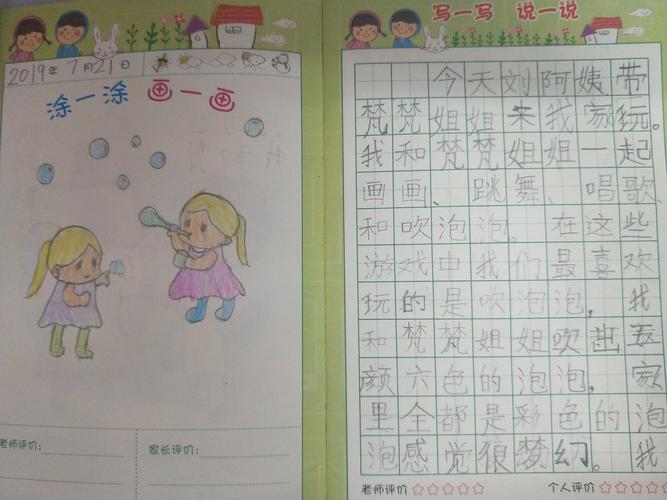 2019年7月21日
涂一涂 画一画
老师评价:
家长评价:
写一写 说一说
今天刘阿姨带
梵梵姐姐来我家玩。
我和梵梵姐姐一起
画画、跳舞、唱歌
和吹泡泡。在这些
游戏中我们最喜欢
玩的是吹泡泡,我
和梵梵姐姐吹出五
颜六色的泡泡,家
里全都是彩色的泡
泡感觉很梦幻。我
老师评价
个人评价